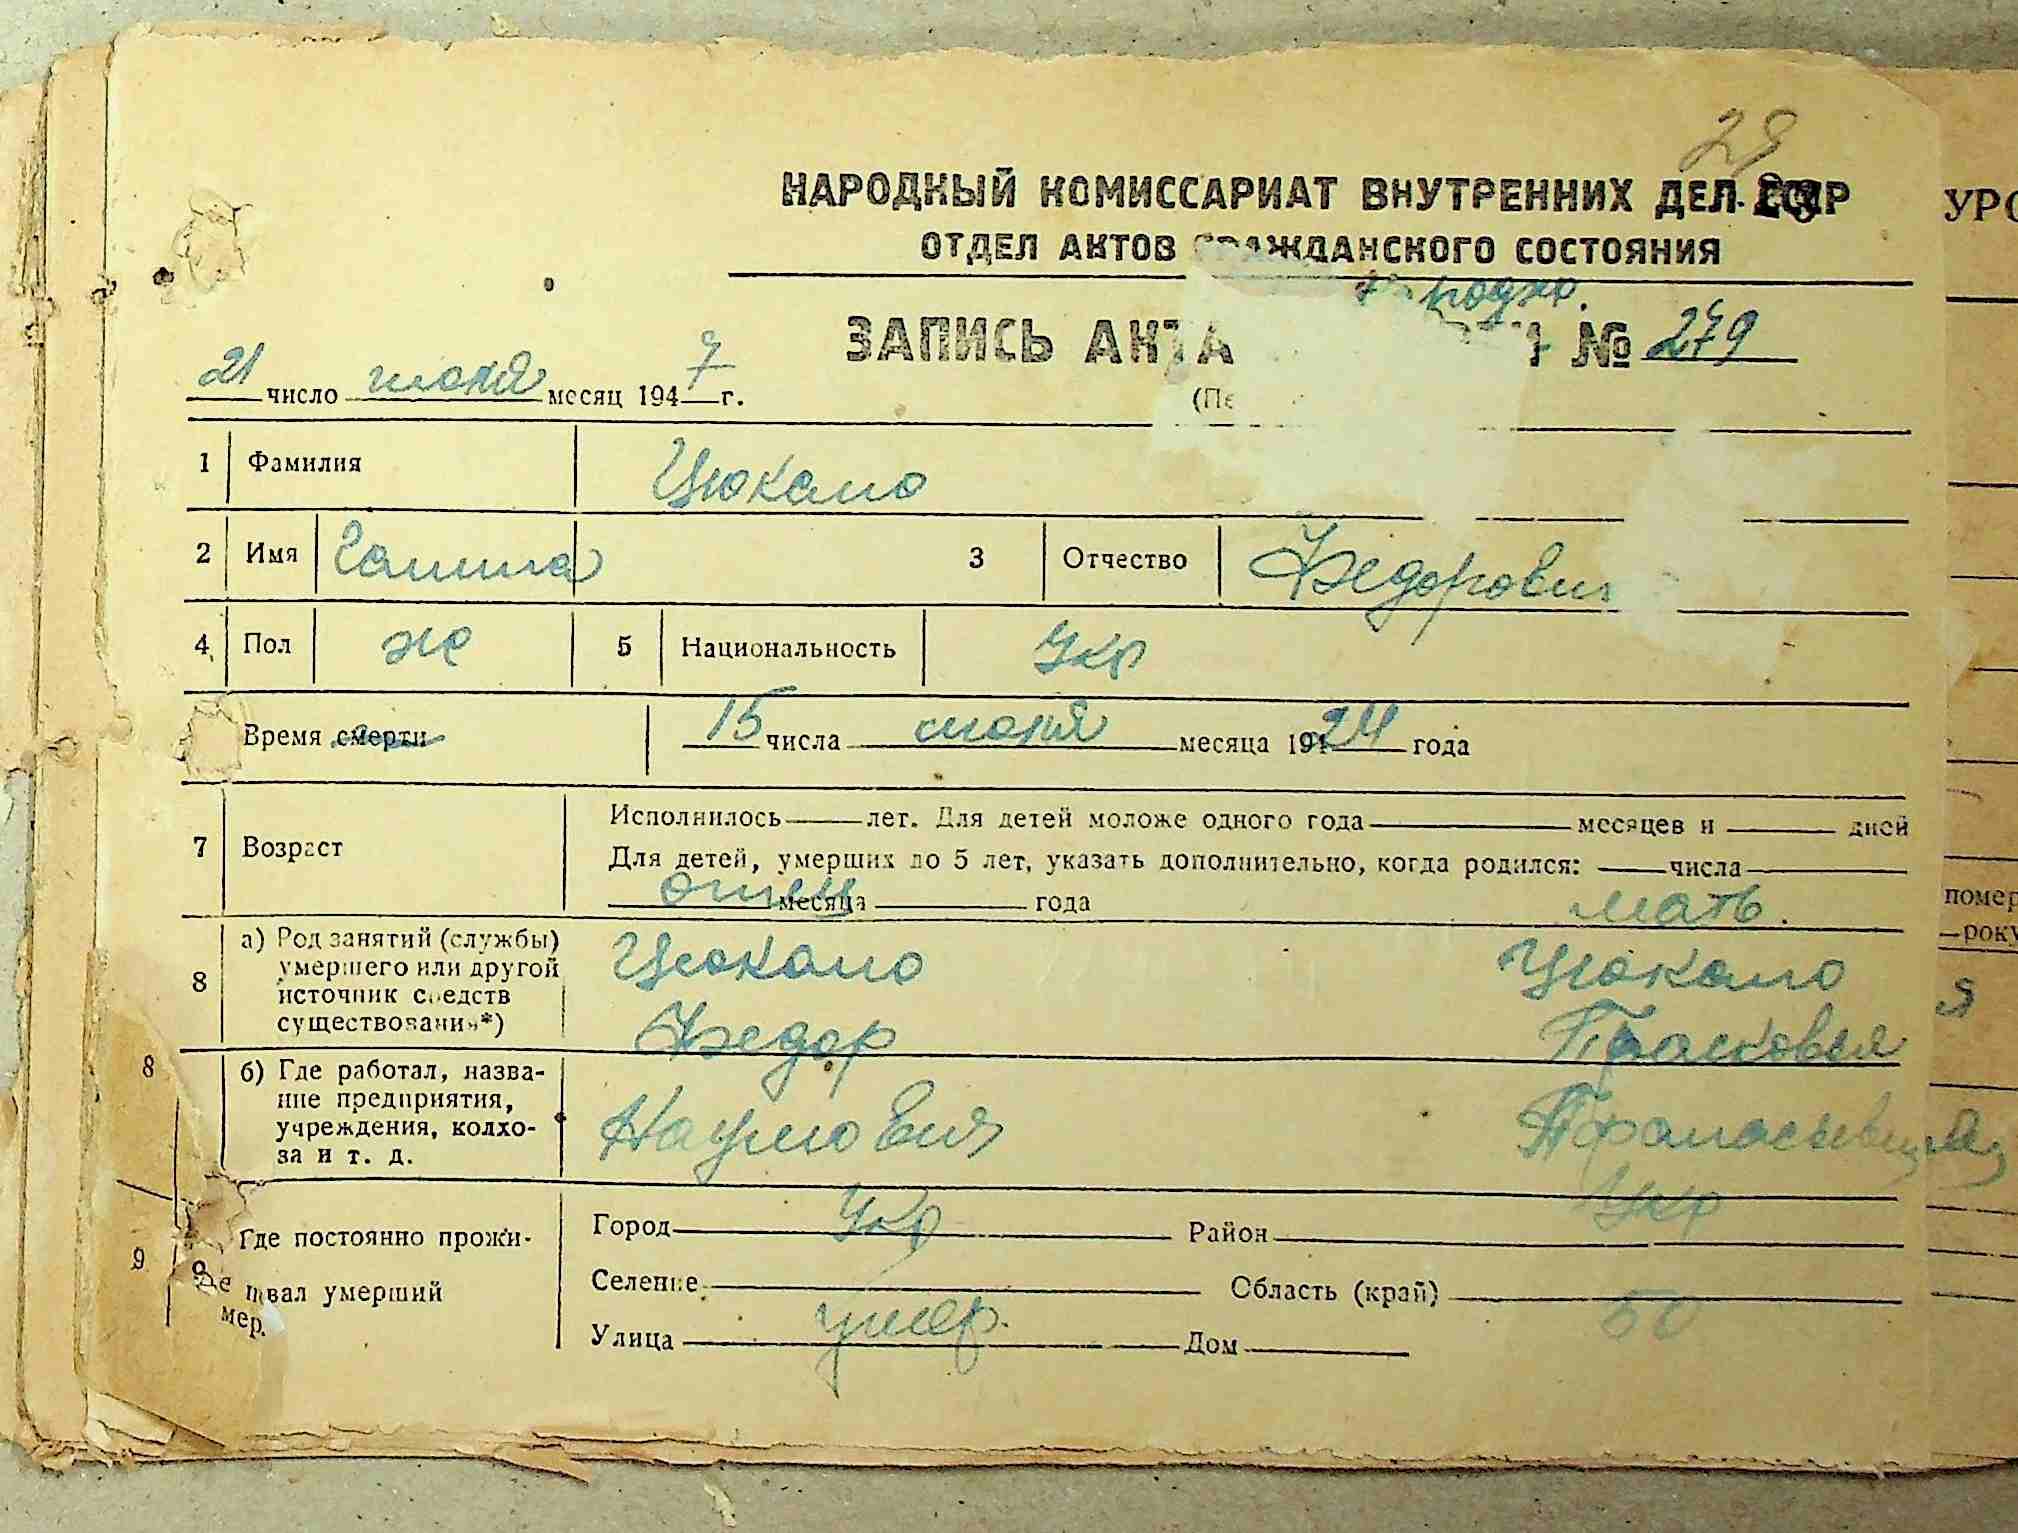 29
НАРОДНЫЙ КОМИССАРИАТ ВНУТРЕННИХ ДЕЛ
УРС
ОТДЕЛ АКТОВ ГРАЖДАНСКОГО СОСТОЯНИЯ
ЗАПИСЬ АКТА № 279
21 число июня месяц 1947 г.
(Пе
1 Фамилия Цюкало
2 Имя Галина 3 Отчество Федоровн
4 Пол ж 5 Национальность Укр
Время смерти 15 числа июня месяца 1924 года
7 Возраст Исполнилось лет. Для детей моложе одного года месяцев и дней
Для детей, умерших до 5 лет, указать дополнительно, когда родился: числа
месяца года
отец мать.
помер
року
8 а) Род занятий (службы) умершего или другой источник средств существования*)
Цюкало Цюкало
Федор Прасковья
я
8 б) Где работал, название предприятия, учреждения, колхоза и т. д.
Наумович
Укр Укр
9 Где постоянно прожи-
вал умерший
мер.
Город Район
Селение Область (край)
умер. 50
Улица Дом